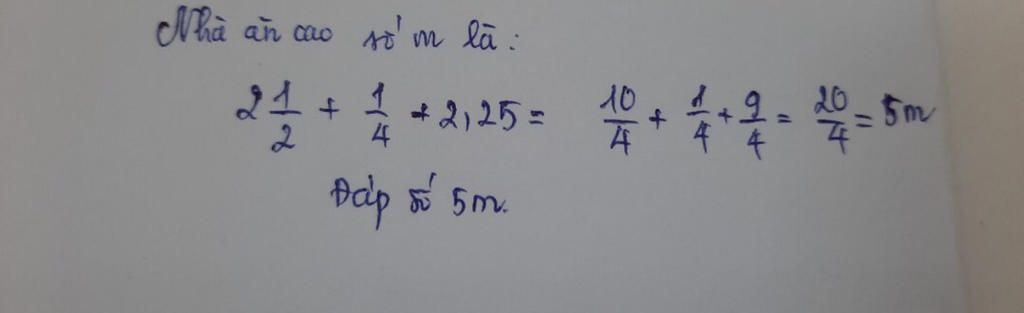 Nhà ăn cao số m là:
2 1/2 + 1/4 + 2,25 = 10/4 + 1/4 + 9/4 = 20/4 = 5m
Đáp số 5m.